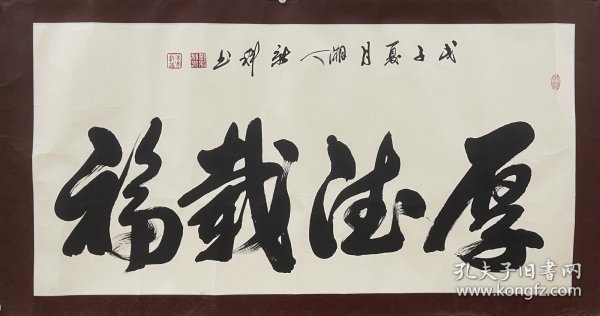 厚德栽福
戊子夏月湘人新科书
孔夫子旧书网
www.kongfz.com